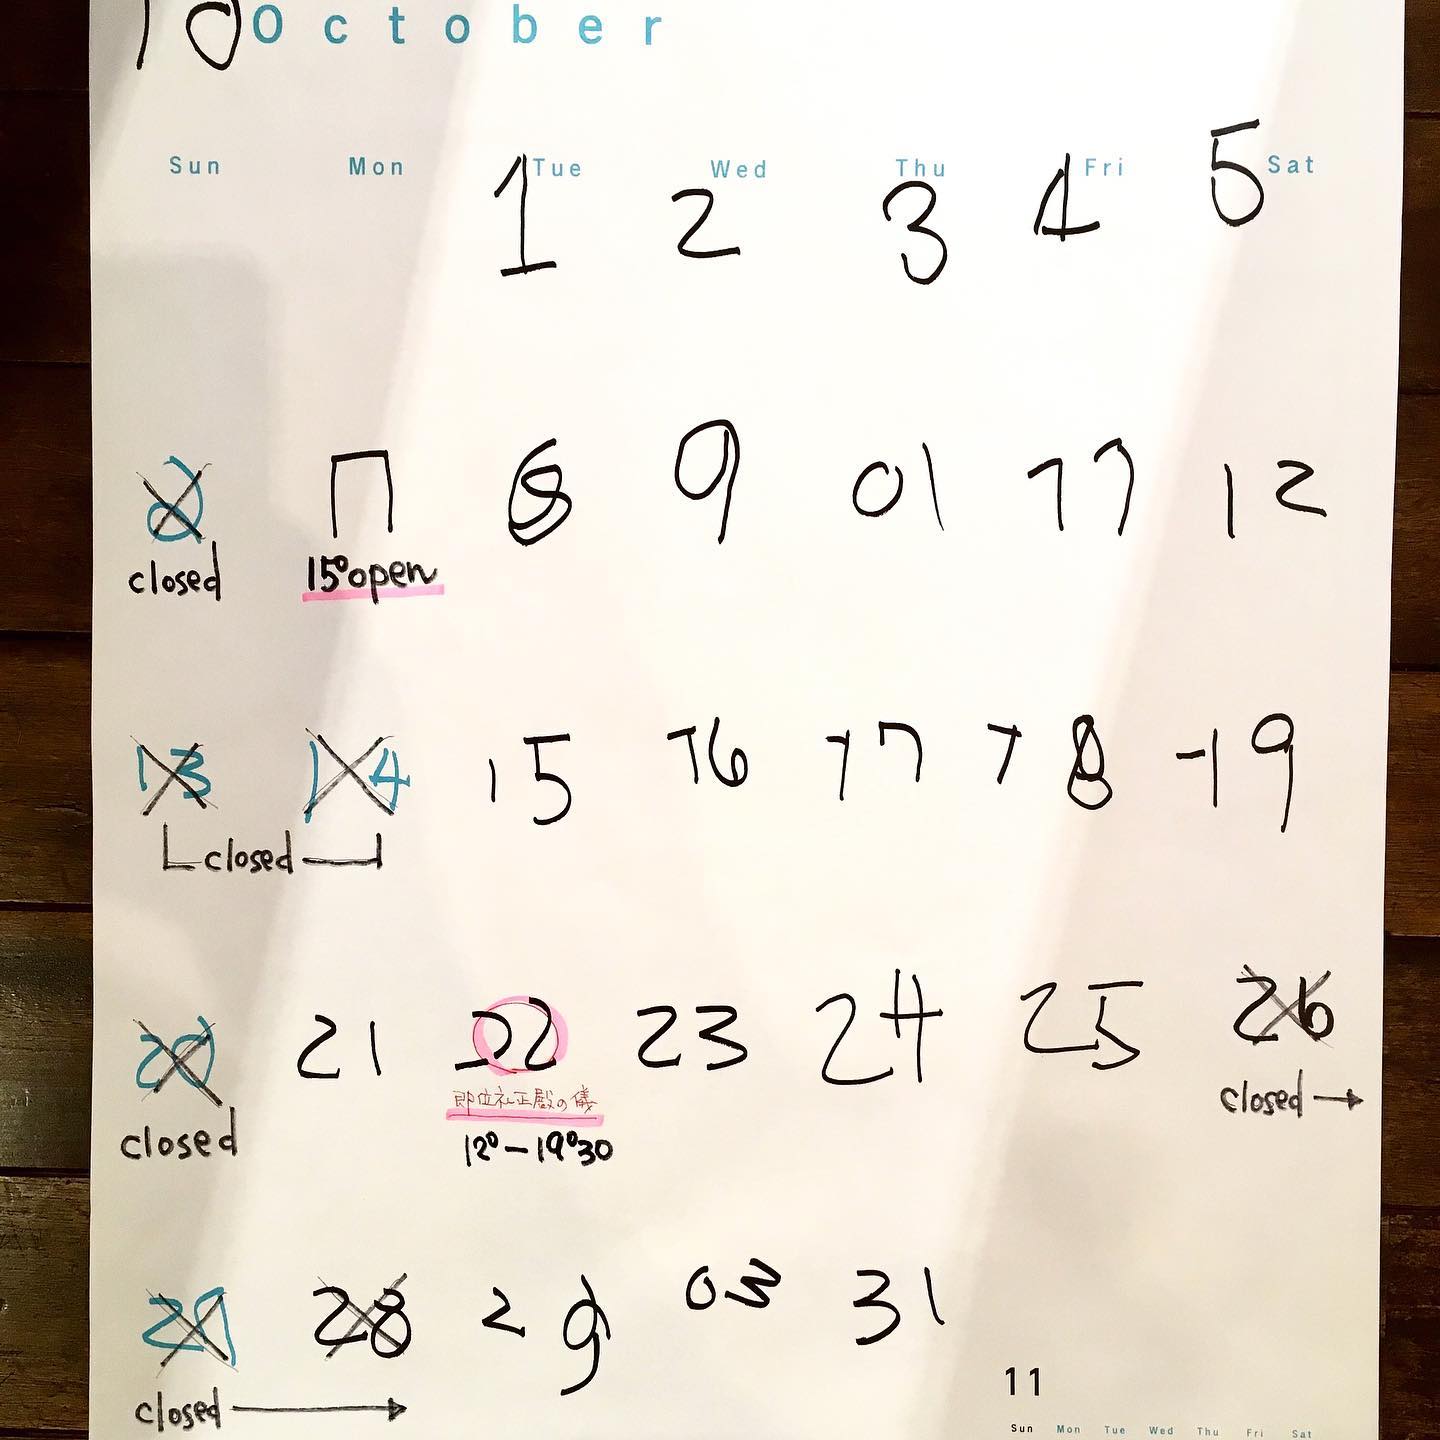 10 October
Sun Mon Tue Wed Thu Fri Sat
1 2 3 4 5
6 7 8 9 01 11 12
closed 15°open
13 14 15 16 17 18 19
closed
20 21 22 23 24 25 26
closed 即位礼正殿の儀 closed→
12°-19°30
27 28 29 03 31
closed→
11
Sun Mon Tue Wed Thu Fri Sat